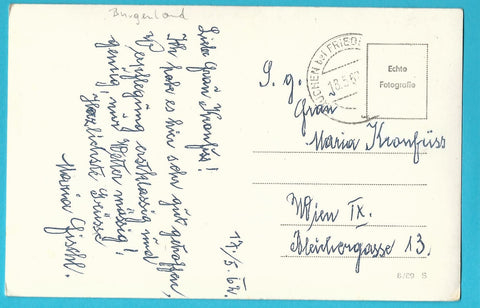 Burgenland
Liebe Frau Kronfuss!
Ich habe es hier sehr gut getroffen,
Verpflegung erstklassig und
genug, nur Wetter mässig!
Herzlichste Grüsse
Maria
17./5. 62.
UCHEN bei FRIED
18.5.62
Echte
Fotografie
S. g.
Frau
Maria Kronfuss
Wien IX.
Bleichergasse 13.